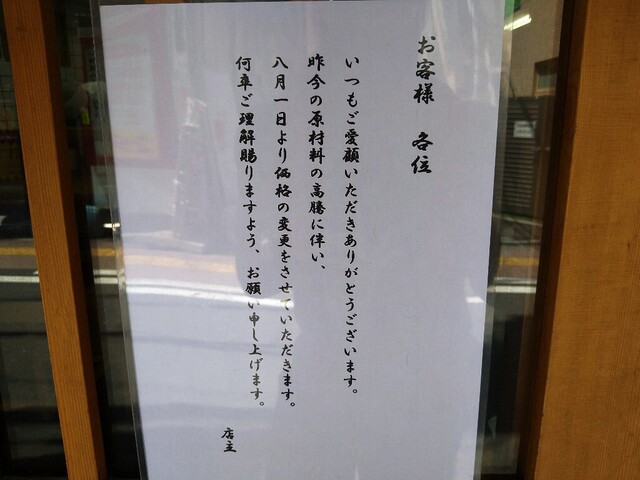 お客様 各位
いつもご愛顧いただきありがとうございます。
昨今の原材料の高騰に伴い、
八月一日より価格の変更をさせていただきます。
何卒ご理解賜りますよう、お願い申し上げます。
店主